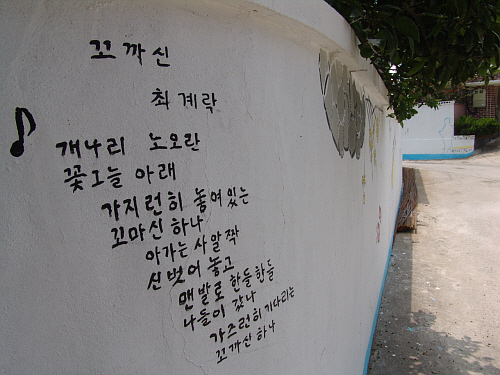 꼬까신
최계락
개나리 노오란
꽃그늘 아래
가지런히 놓여있는
꼬마신 하나
아가는 사알짝
신벗어 놓고
맨발로 한들한들
나들이 갔나
가즈런히 기다리는
꼬까신 하나